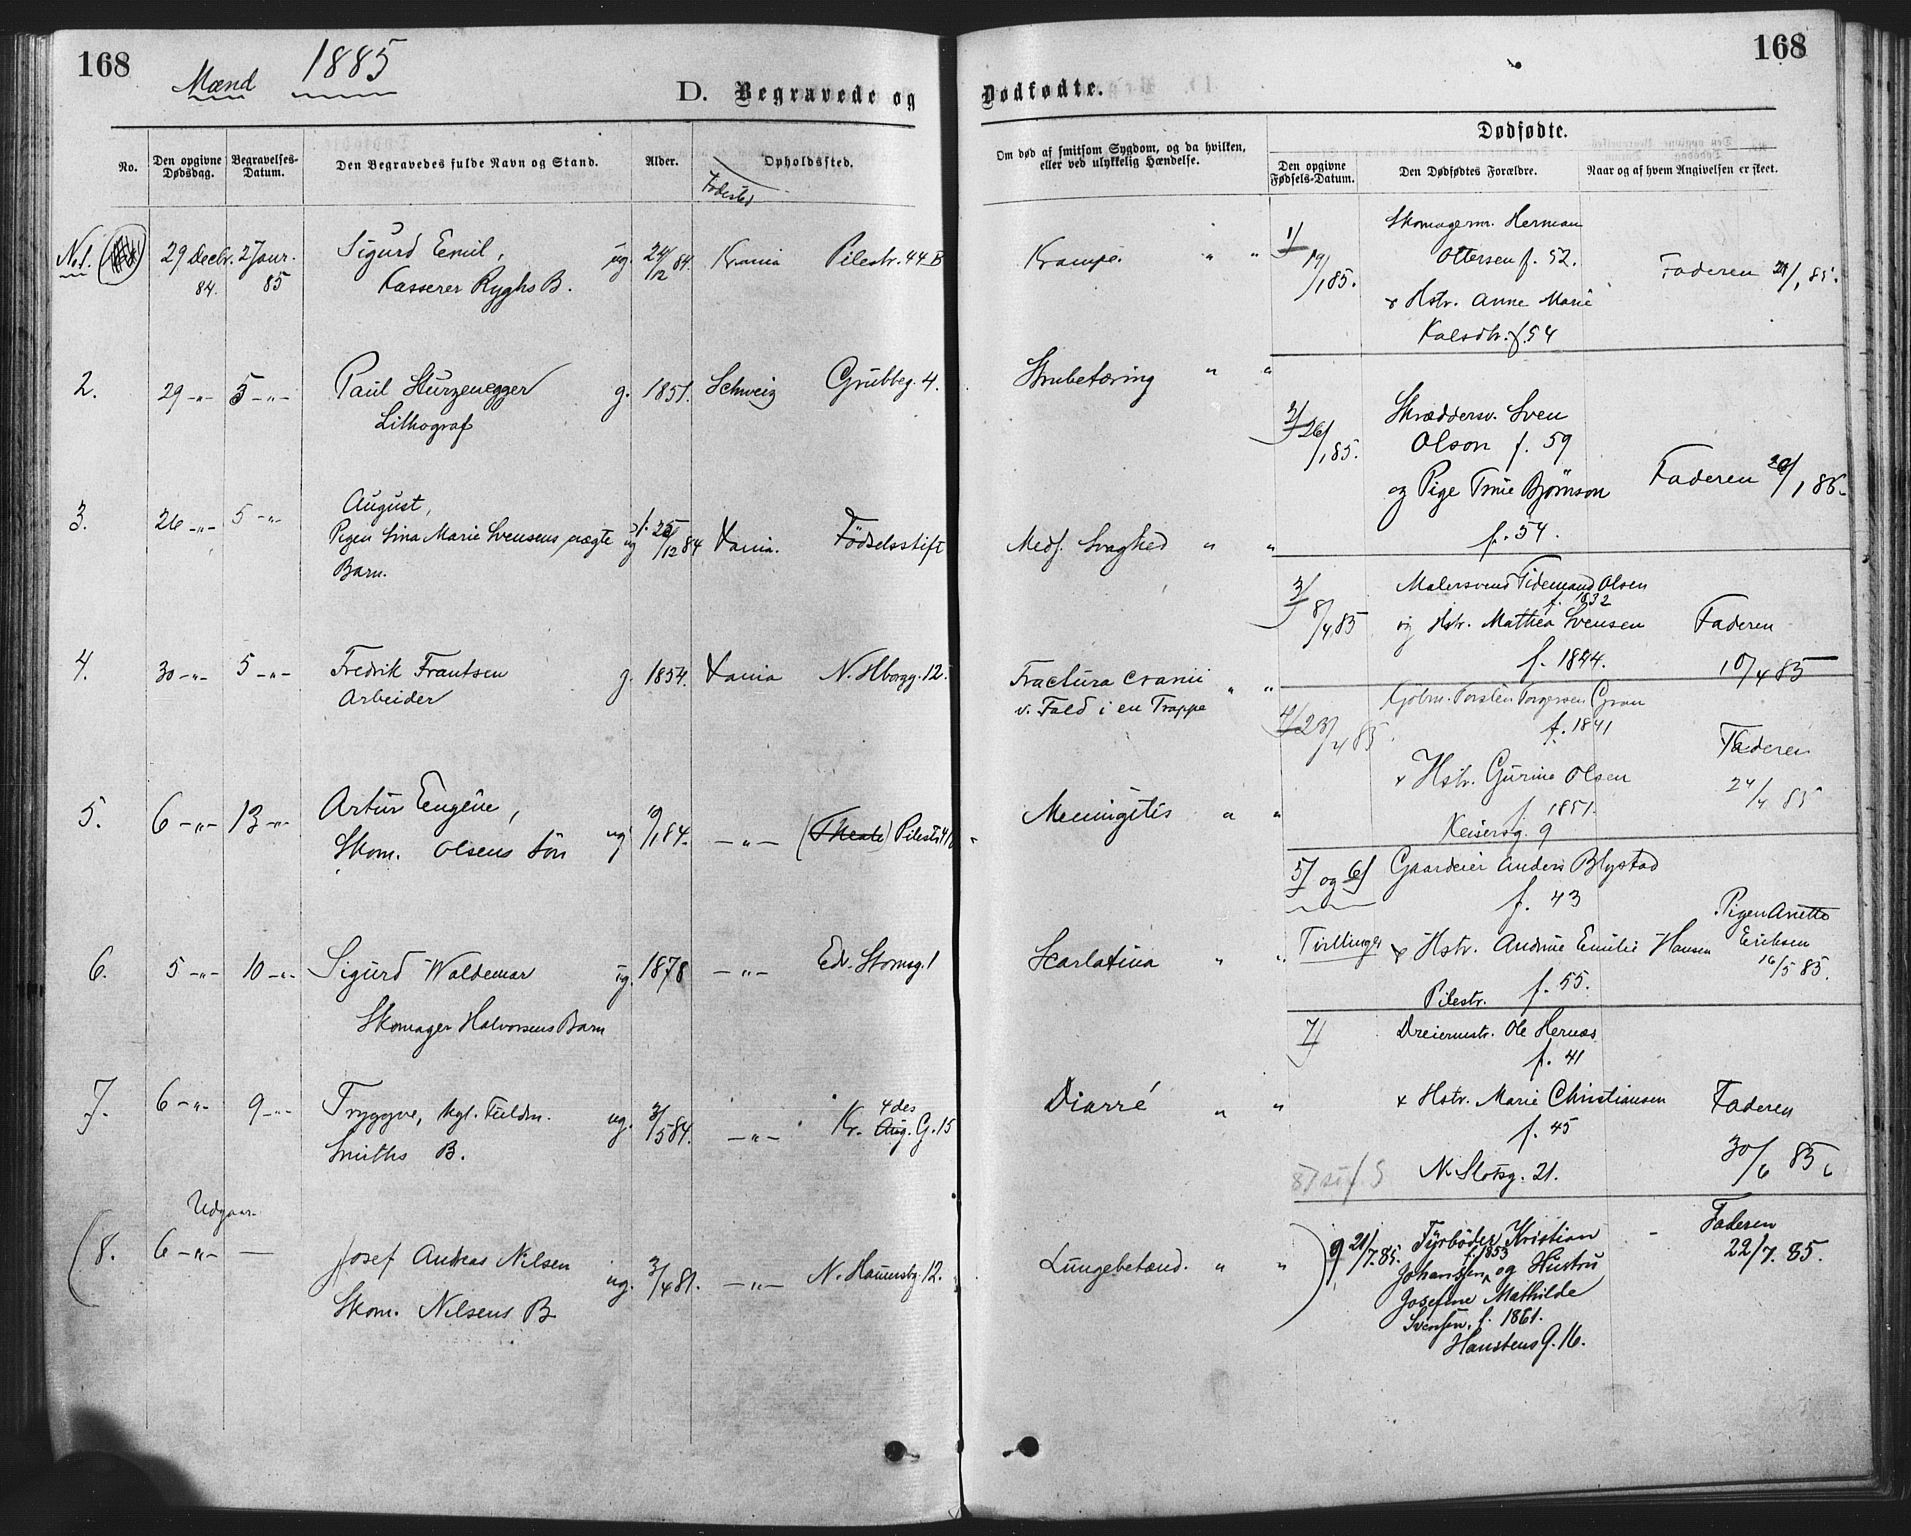 168
Mænd 1885
D. Begravede og
No.
Den opgivne Dødsdag.
Begravelses-Datum.
Den Begravedes fulde Navn og Stand.
Alder.
Opholdssted.
Fødested
No 1. 29 Decbr. 2 Janr. Sigurd Emil, ug. 24/12 84. Krania Pilestr. 44 B
84. 85 Kasserer Ryghs B.
2. 29 -"- 5 -"- Paul Sturzenegger g. 1851. Schweiz Grubbeg. 4.
Lithograf
3. 26 -"- 5 -"- August,
Pigen Lina Marie Svensens uægte ug f. 25/12 84 Xania. Fødselsstift
Barn.
4. 30 -"- 5 -"- Fredrik Frantsen g. 1854. Xania N. Hborgg. 12.
Arbeider
5. 6 -"- 13 -"- Artur Eugene,
Skom. Olsens Søn ug /1 84. -"- Pilestr.
6. 5 -"- 10 -"- Sigurd Waldemar ug. 1878 -"- Edv. Stormsg. 1
Skomager Halvorsens Barn
7. 6 -"- 9 -"- Tryggve, kgl. Fuldm. ug. 3/5 84. -"- Kr. Aug. G. 15
4des
Smiths B.
Udgaar
(8. 6 -"- — Josef Andreas Nilsen ug. 3/4 81. -"- N. Hammersbg. 12.
Skom. Nilsens B
168
Dødfødte.
Om død af smitsom Sygdom, og da hvilken,
eller ved ulykkelig Hændelse.
Dødfødte.
Den opgivne Fødsels-Datum.
Den Dødfødtes Forældre.
Naar og af hvem Angivelsen er skeet.
Krampe. " "
Strubetæring " "
Medf. Svaghed " "
Fractura cranii " "
v. Fald i en Trappe
Meningitis " "
Scarlatina " "
Diarré " "
Lungebetænd. " "
1/ 19/1 85. Skomagerm. Herman
Ottersen f. 52.
& Hstr. Anne Marie
f. 54
Faderen 21/1 85.
2/ 26/1 85. Skræddersv. Sven
Olson f. 59
og Pige Trine Bjørnson
f. 54.
Faderen /1 85.
3/ 8/4 85 Malersvend Tidemand Olsen
f. 1832
og Hstr. Mathea Svensen
f. 1844.
Faderen
10/4 85
4/ 23/4 85. Kjøbm. Torsten Torgersen Gran
f. 1841
& Hstr. Gurine Olsen
f. 1851.
Keisersg. 9
Faderen
24/4 85
5/ og 6/ Gaardeier Anders Blystad
f. 43
Tvillinger & Hstr. Andrine Emilie Hansen
Pilestr. f. 55.
Pigen Anette
Eriksen
16/5 85.
7/ Dreiermstr. Ole Hernæs
f. 41
& Hstr. Marie Christiansen
f. 45
N. Slotsg. 21.
Faderen
30/6 85
9 21/7. 85. Fyrbøder Kristian
f. 1853
Johanssen og Hustru
Josefine Mathilde
Svensen, f. 1861.
Hanstens G. 16.
Faderen
22/7. 85.